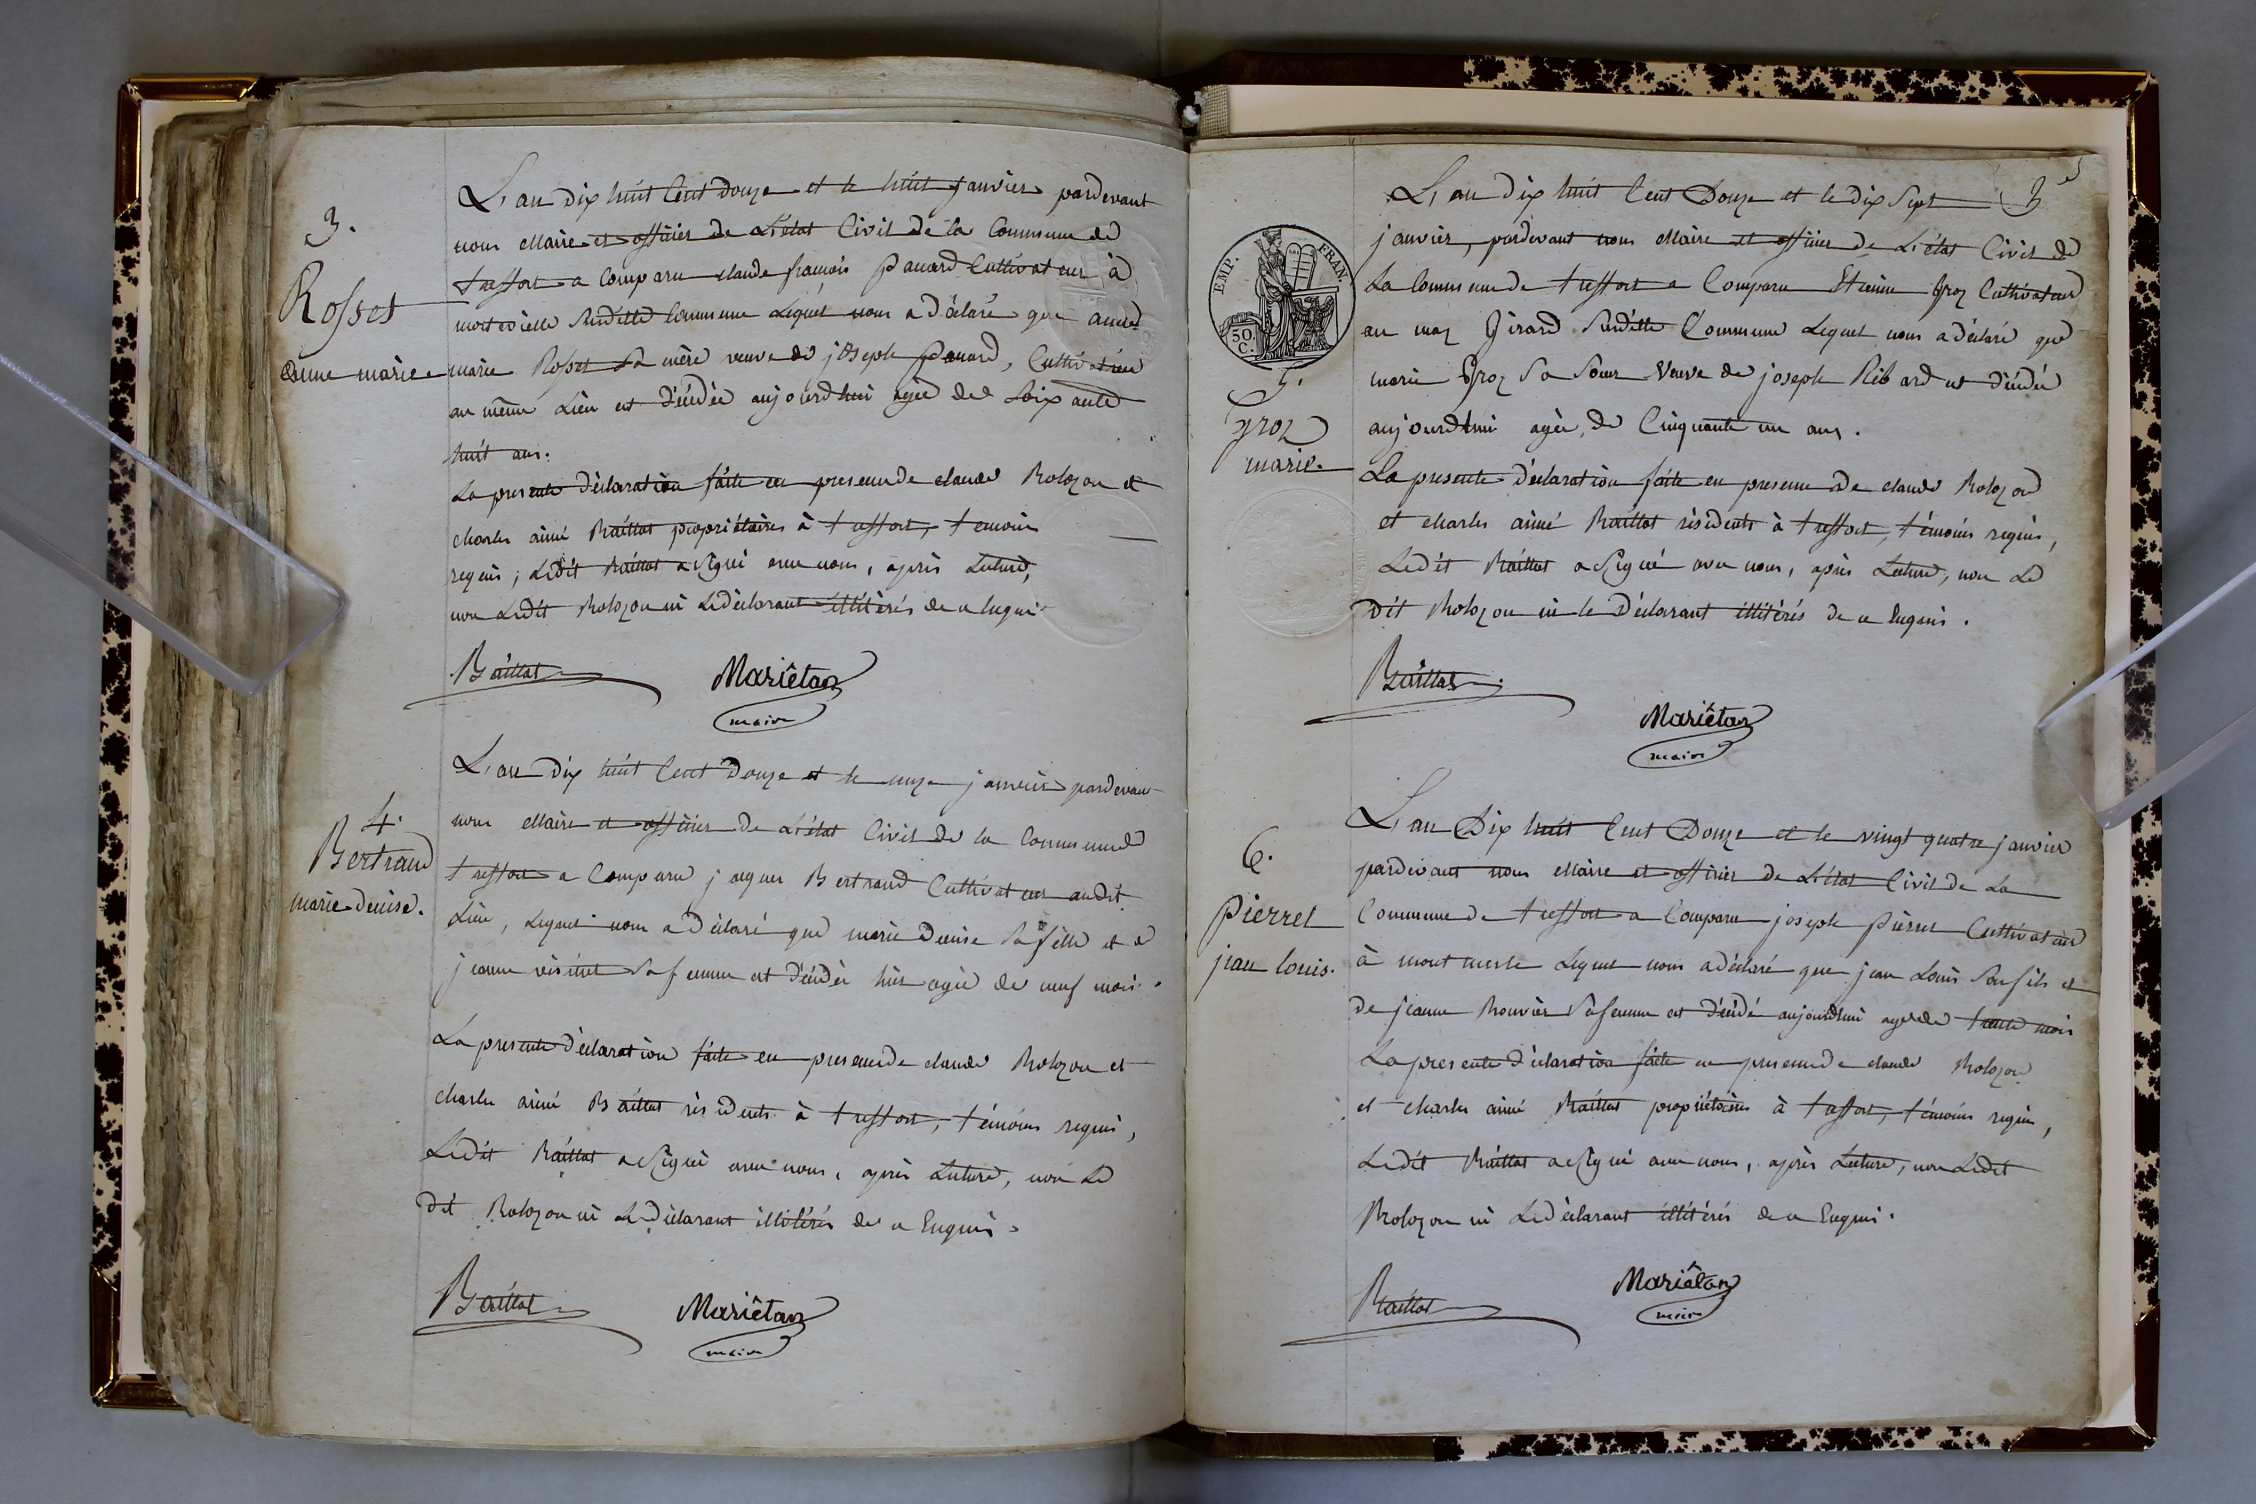 3.
Rosset
anne marie.
L'an dix huit cent douze et le huit janvier pardevant
nous Maire et officier de L'état Civil de la Commune de
treffort a Comparu claude françois panard Cultivateur à
Susditte Commune Lequel nous a déclaré que anne
marie Rosset Sa mère veuve de joseph panard, Cultivateur
au même Lieu est décédée aujourdhui agée de Soixante
huit ans.
La presente déclaration faite en presence de claude Bolozon et
charles aimé Baillat propriétaires à treffort, temoins
requis, Ledit Baillat a signé avec nous, après Lecture,
non Ledit Bolozon ni Le déclarant illitérés de ce Enquis
Baillat Mariêtan
maire
4.
Bertrand
marie denise.
L'an dix huit Cent Douze et le onze janvier pardevant
nous Maire et officier de L'état Civil de la Commune de
treffort a Comparu jaques Bertrand Cultivateur audit
Lieu, Lequel nous a déclaré que marie denise Sa fille et de
jeanne Sa femme est décédée hier agée de neuf mois.
La presente déclaration faite en presence de claude Bolozon et
charles aimé Baillat résidents à treffort, témoins requis,
Ledit Baillat a signé avec nous, après Lecture, non Le
dit Bolozon ni Le déclarant illitérés de ce Enquis.
Baillat Mariêtan
maire
3
EMP. FRAN.
50 C.
5.
groz
marie.
L'an dix huit Cent Douze et le dix Sept
janvier, pardevant nous Maire et officier de L'état Civil de
La Commune de treffort a Comparu Etienne Groz Cultivateur
au maz Girard Susditte Commune Lequel nous a déclaré que
marie Groz Sa Soeur Veuve de joseph Ribard est décédée
aujourdhui agée, de Cinquante un ans.
La presente déclaration faite en presence de claude Bolozon
et charles aimé Baillat résidents à treffort, témoins requis,
Ledit Baillat a signé avec nous, après Lecture, non Le
dit Bolozon ni le Déclarant illitérés de ce Enquis.
Baillat
Mariêtan
maire
6.
pierret
jean louis.
L'an Dix huit Cent Douze et le vingt quatre janvier
pardevant nous Maire et officier de L'état Civil de La
Commune de treffort a Comparu joseph pierret Cultivateur
à montmerle Lequel nous a déclaré que jean Louis Son fils et
de jeanne Bouvier Sa femme est décédé aujourdhui agé de trente mois
La presente déclaration faite en presence de claude Bolozon
et charles aimé Baillat propriétaires à treffort, témoins requis,
Ledit Baillat a signé avec nous, après Lecture, non Ledit
Bolozon ni Le déclarant illitérés de ce Enquis.
Baillat Mariêtan
maire